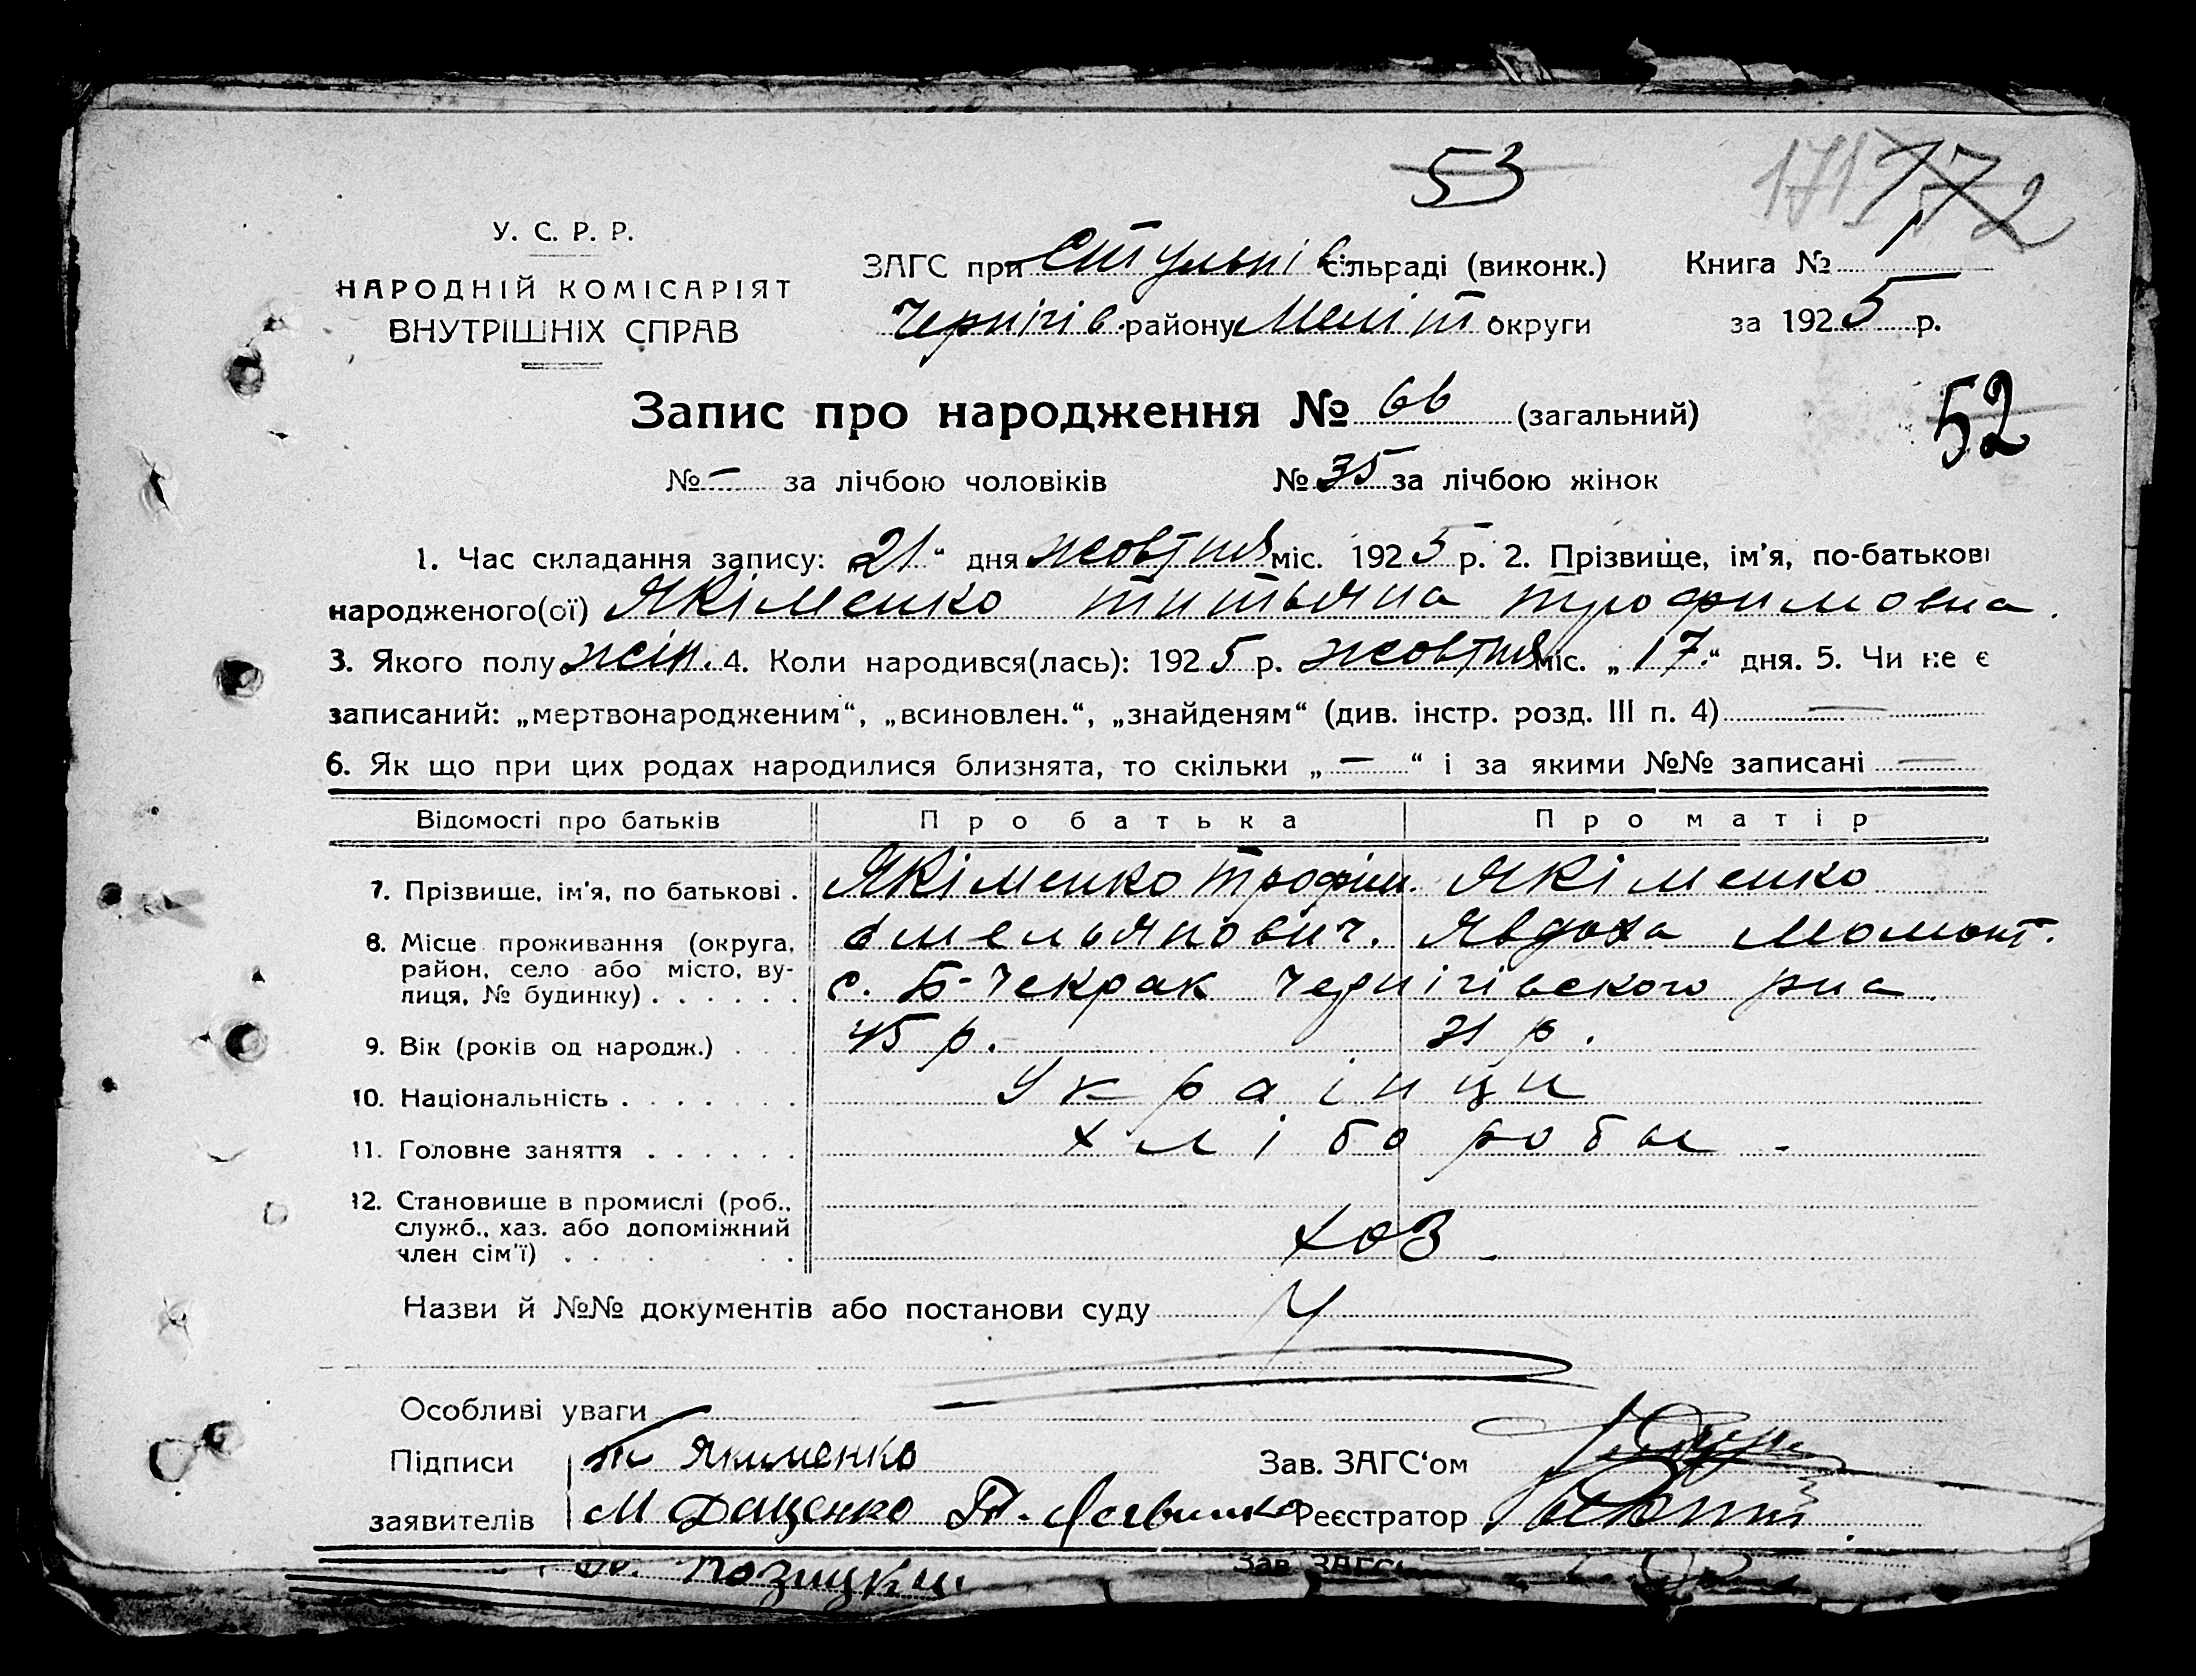 53
171 172
У. С. Р. Р.
НАРОДНІЙ КОМІСАРІЯТ
ВНУТРІШНІХ СПРАВ
ЗАГС при Стульнів. сільраді (виконк.)
Чернігів. району Меліт округи
Книга № 1
за 1925 р.
Запис про народження № 66 (загальний)
52
№ – за лічбою чоловіків № 35 за лічбою жінок
1. Час складання запису: „21“ дня жовтня міс. 1925 р. 2. Прізвище, ім'я, по-батькові
народженого(ої) Якіменко титьяна трофимовна.
3. Якого полу жін. 4. Коли народився(лась): 1925 р. жовтня міс. „17“ дня. 5. Чи не є
записаний: „мертвонародженим“, „всиновлен.“, „знайденям“ (див. інстр. розд. III п. 4) —
6. Як що при цих родах народилися близнята, то скільки „—“ і за якими №№ записані —
Відомості про батьків Про батька Про матір
7. Прізвище, ім'я, по батькові . Якіменко трофим. Якіменко
Омельянович. Явдоха Момонт.
8. Місце проживання (округа,
район, село або місто, ву-
лиця, № будинку) . . . . . . с. Б-Чекрак Чернігівского рна.
9. Вік (років од народж.) . . . 45 р. 31 р.
10. Національність . . . . . . . Українци
11. Головне заняття . . . . . . хлібороби -
12. Становище в промислі (роб.,
служб., хаз. або допоміжний
член сім'ї) . . . . . . хоз -
Назви й №№ документів або постанови суду
Особливі уваги
Підписи Т Якименко Зав. ЗАГС'ом
заявителів М Даценко Реєстратор
Позицкий Зав. ЗАГС'